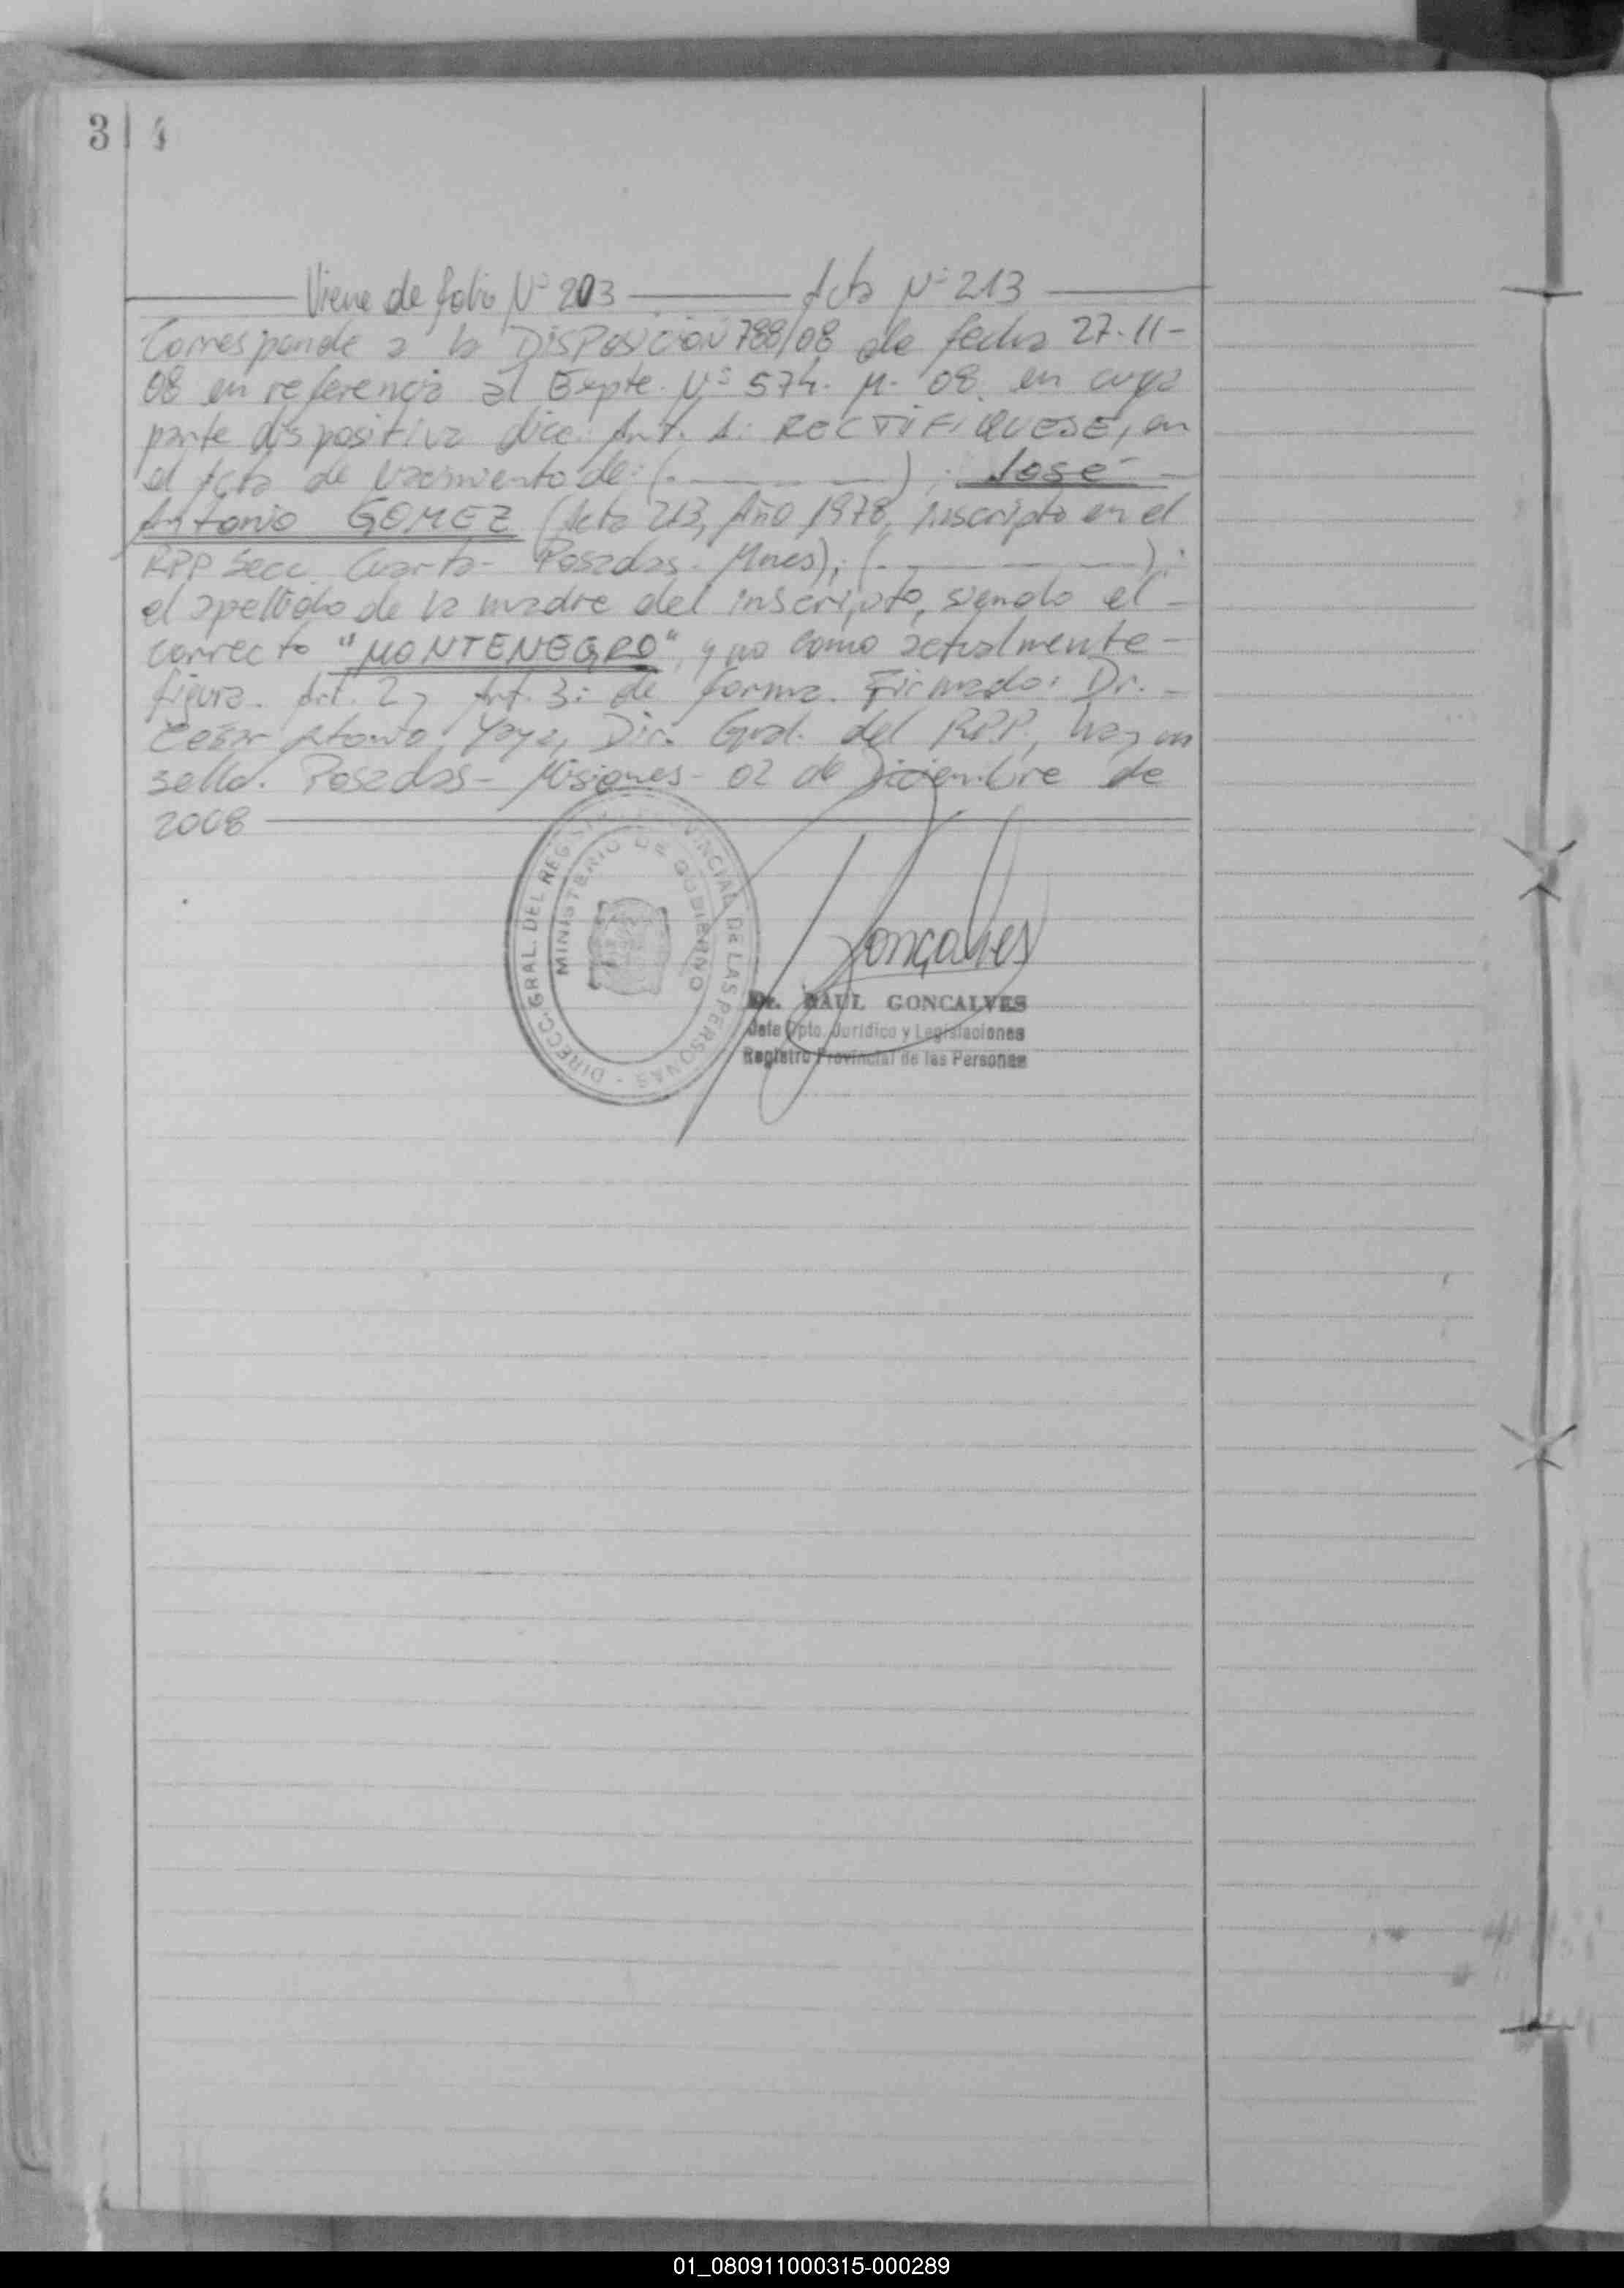 3 4
Viene de folio Nº 203 Acta Nº 213
Corresponde a la DISPOSICIÓN 788/08 de fecha 27-11-
08 en referencia al Expte. Nº 574. M- 08. en cuya
parte dispositiva dice: Art. 1: RECTIFIQUESE, en
el Acta de Nacimiento de: (. — — —) ; José -
Antonio GOMEZ (Acta 213, Año 1978, inscripto en el
RPP Secc. Cuarta- Posadas- Mnes); (. — — —):
el apellido de la madre del inscripto, siendo el -
correcto "MONTENEGRO", y no como actualmente -
figura. Art. 2 y Art. 3: de forma. Firmado: Dr. -
Cesar Antonio Yaya, Dir. Gral. del RPP, hay un
sello. Posadas- Misiones- 02 de Diciembre de
2008
DIRECC. GRAL. DEL REGIST VINCIAL DE LAS PERSONAS -
MINISTERIO DE GOBIERNO
Gonçalves
Dr. RAUL GONCALVES
Jefe Dpto. Jurídico y Legislaciones
Registro Provincial de las Personas
01_080911000315-000289